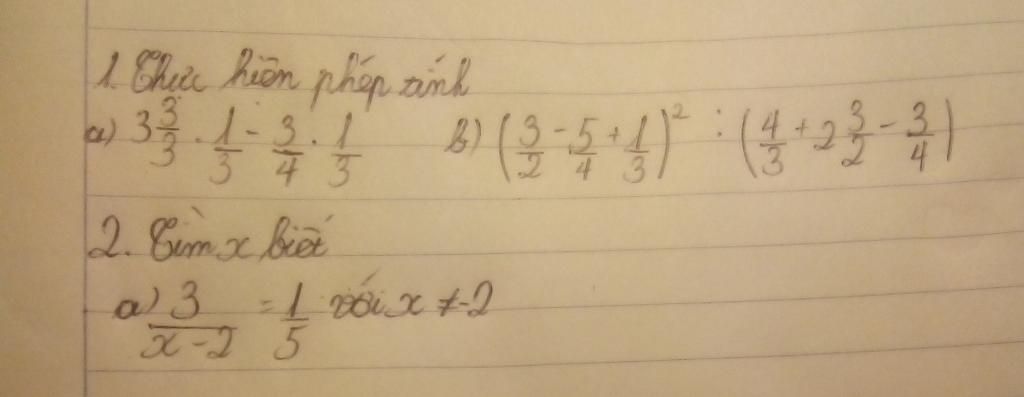 1. Thực hiện phép tính
a) 3 3/3 . 1/3 - 3/4 . 1/3 b) (3/2 - 5/4 + 1/3)² : (4/3 + 2 3/2 - 3/4)
2. Tìm x biết
a) 3/(x-2) = 1/5 với x ≠ -2